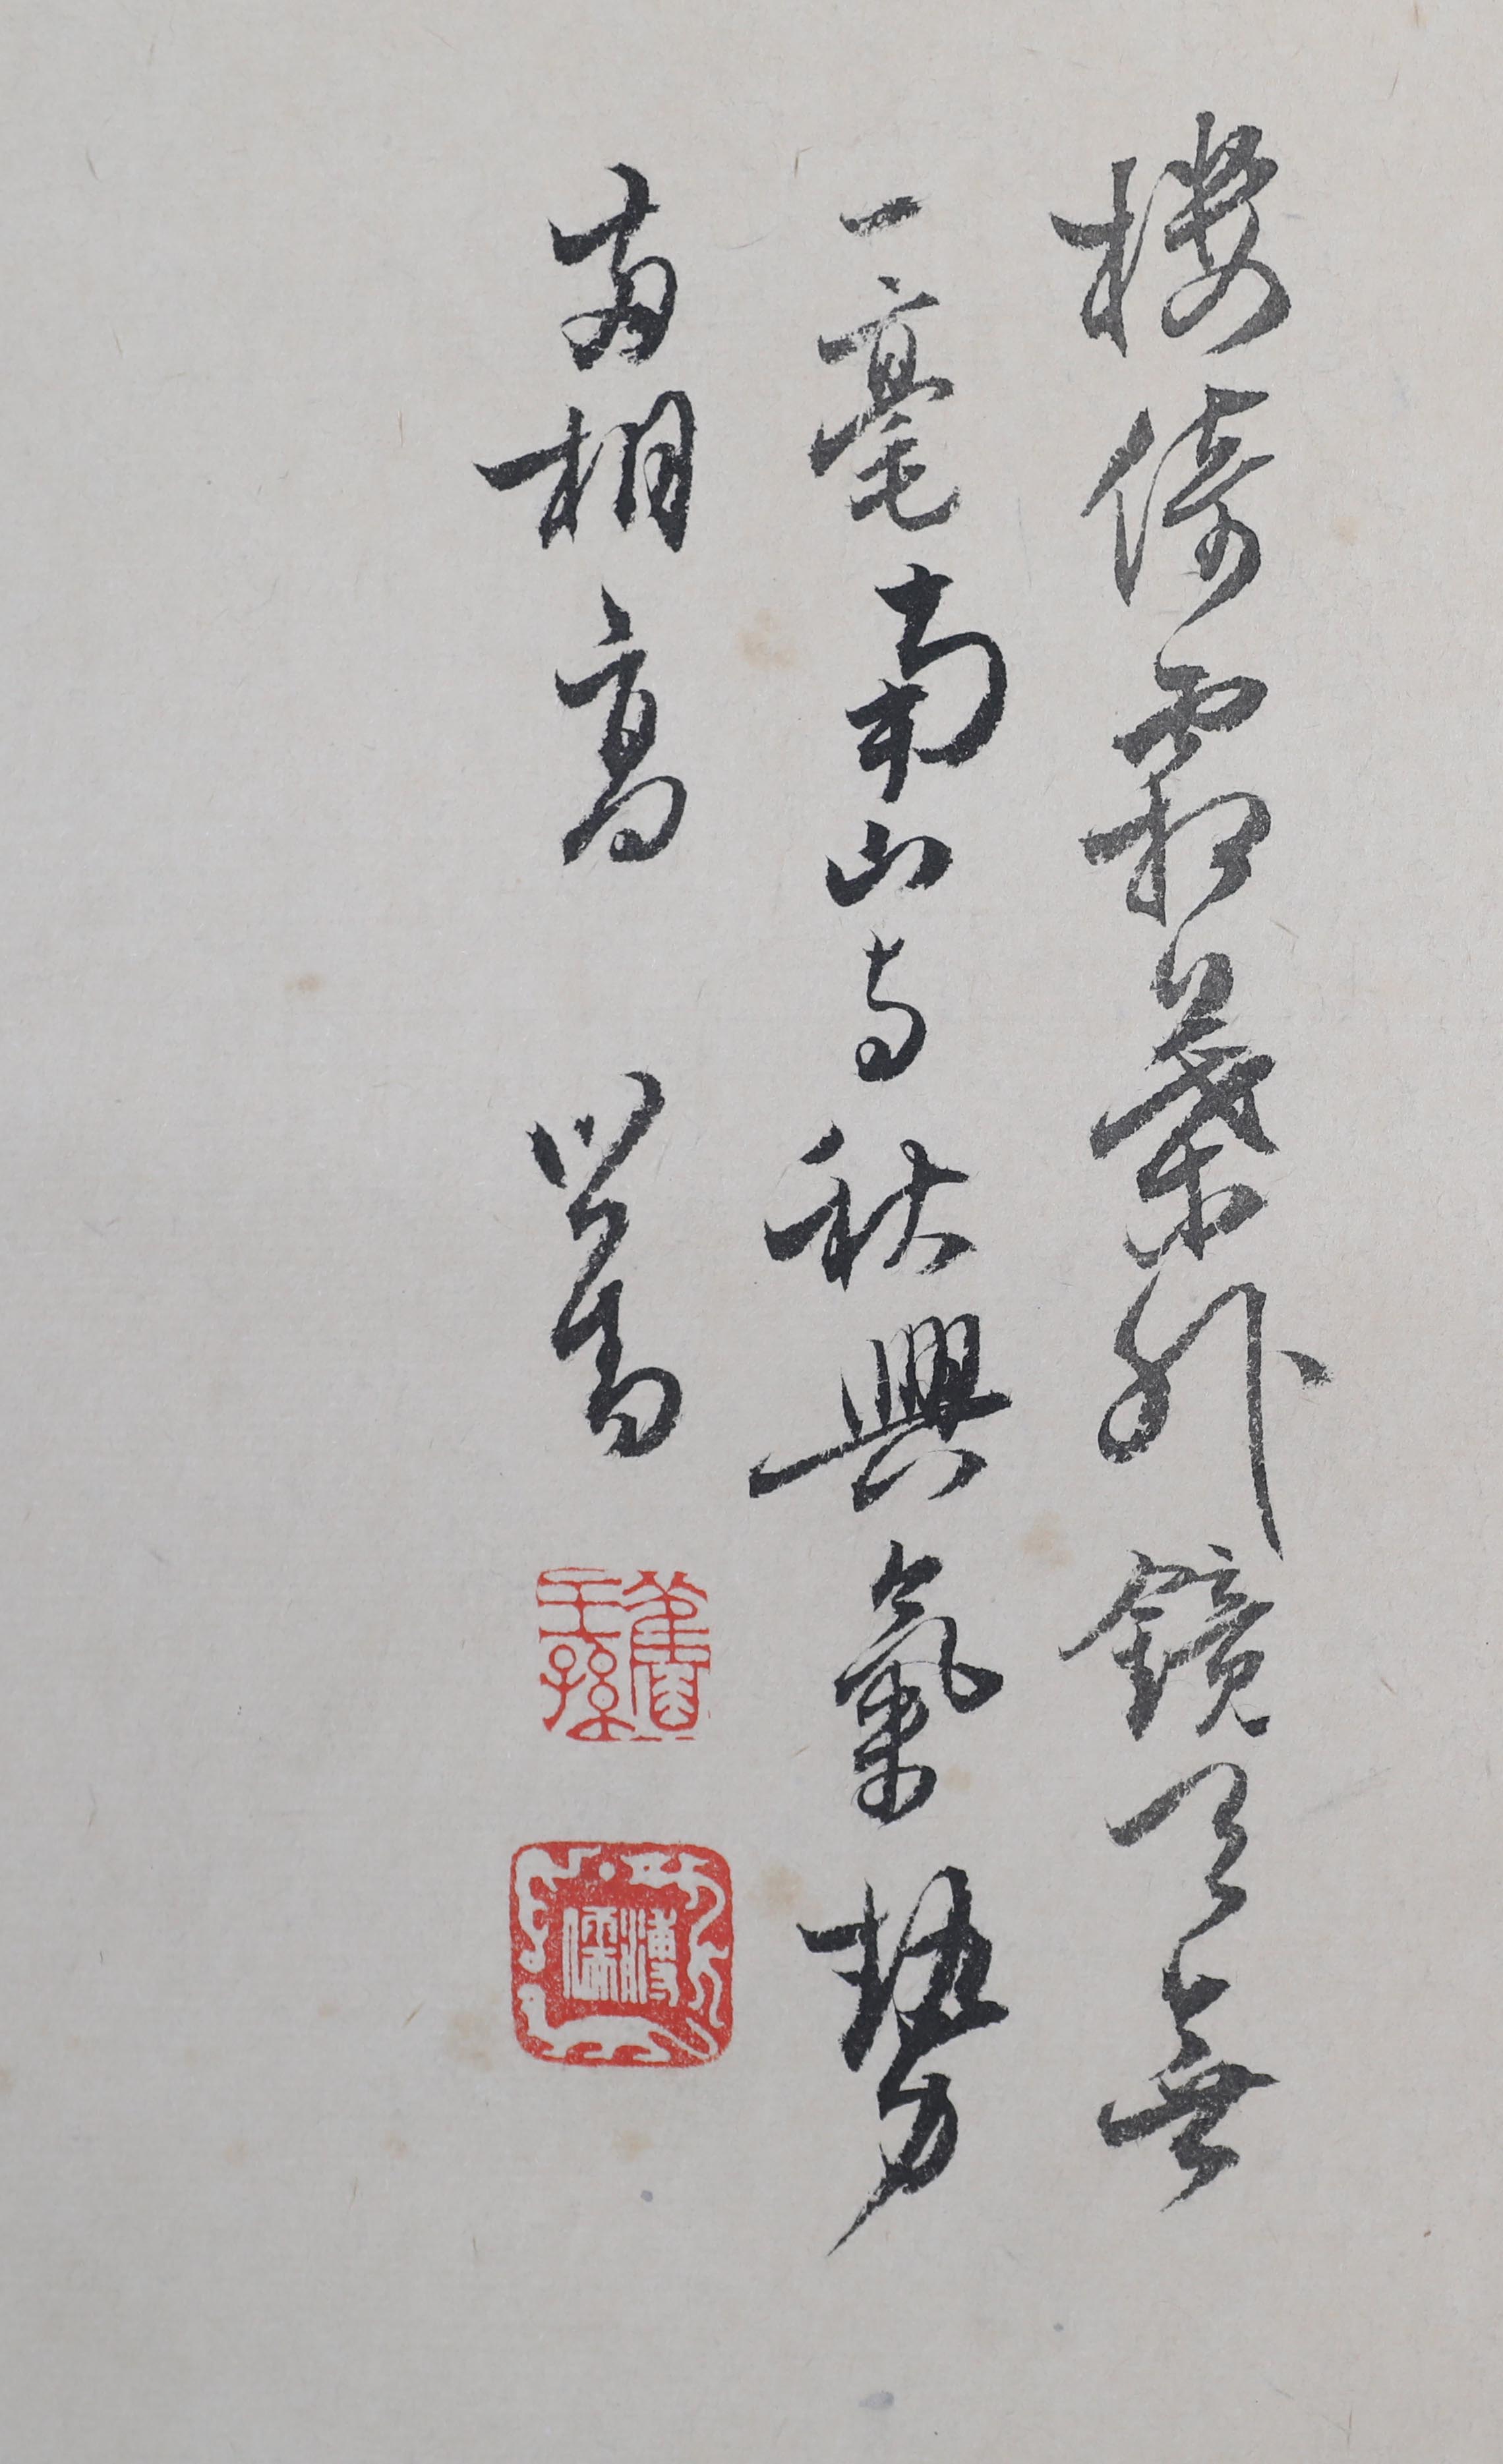 樓倚霜葉外鏡天無
一毫南山與秋興氣勢
兩相高 心畬
舊王孫
溥儒